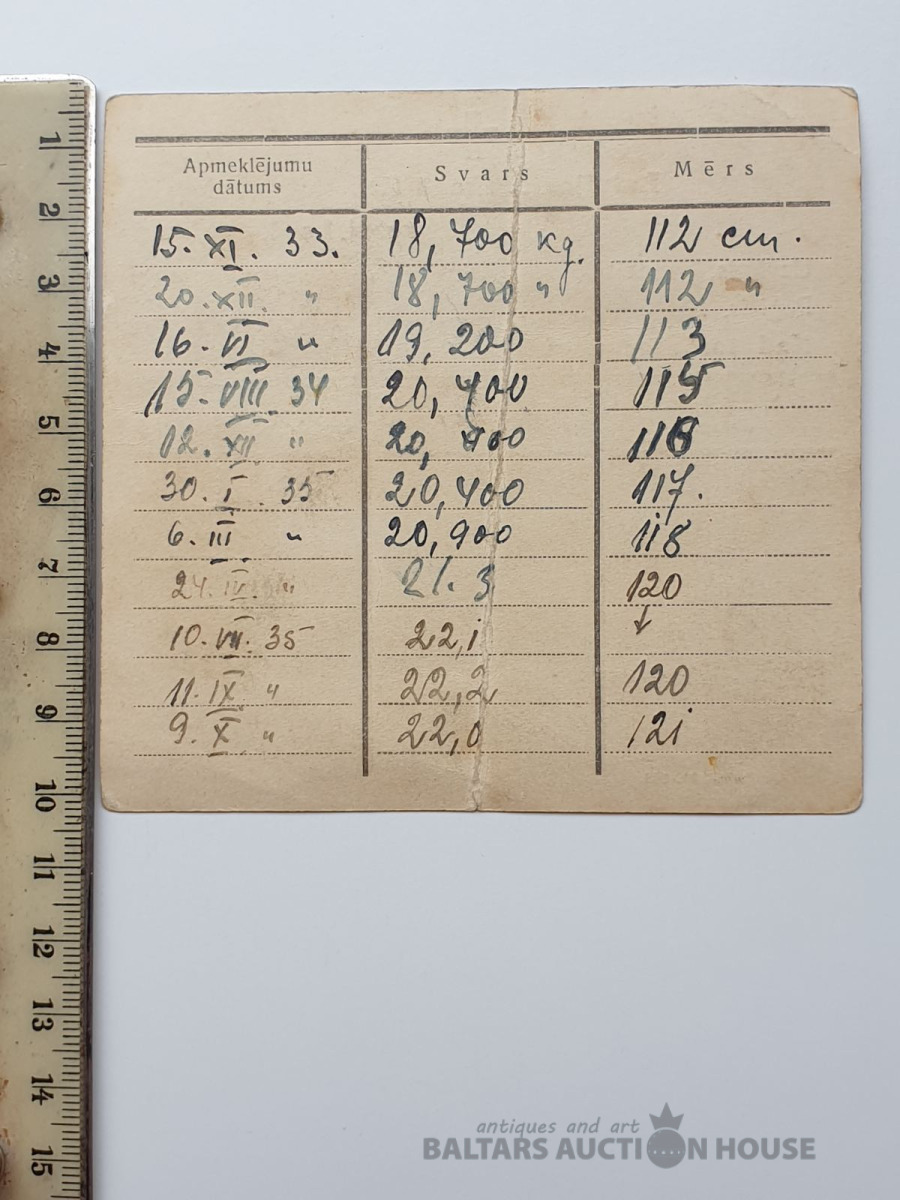 Apmeklējumu dātums Svars Mērs
15. XI. 33. 18,700 kg. 112 cm.
20. XII. " 18,700 " 112 "
16. VI " 19,200 113
15. VIII 34 20,400 115
12. XII " 20, 400 116
30. I. 35 20,400 117.
6. III " 20,900 118
24. IV. " 21.3 120
10. VII. 35 22,1 ↓
11. IX " 22,2 120
9. X " 22,0 121
1
2
3
4
5
6
7
8
9
10
11
12
13
14
15
antiques and art
BALTARS AUCTION HOUSE